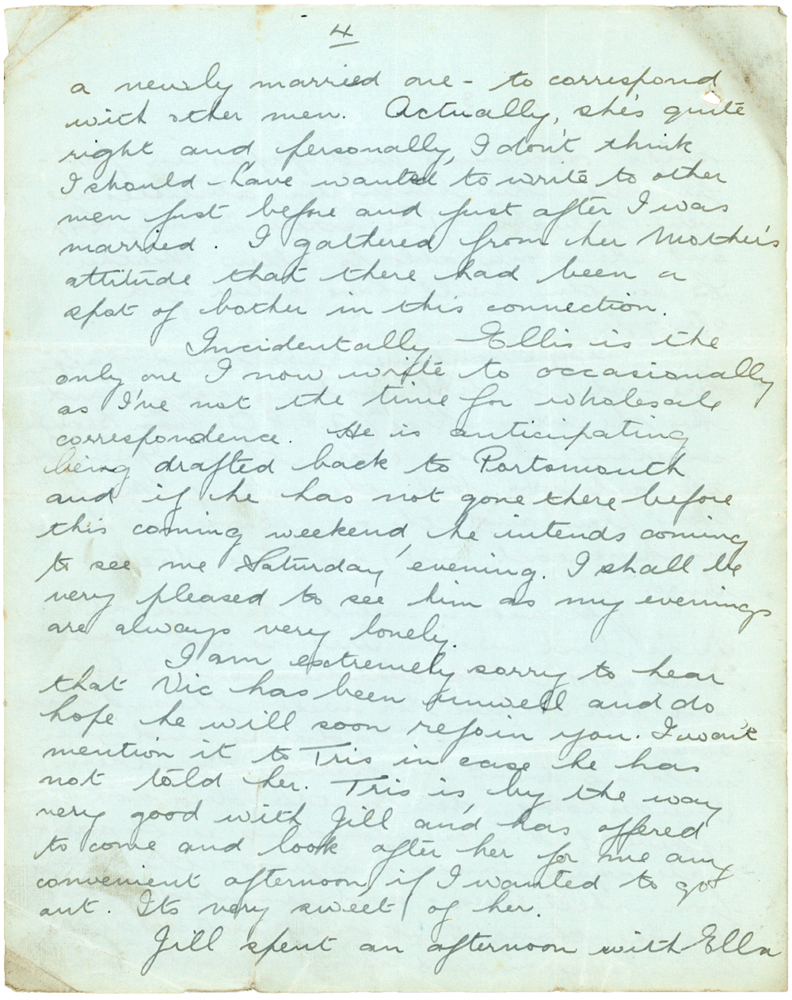 4
a newly married one - to correspond
with other men. Actually, she's quite
right and personally, I don't think
I should have wanted to write to other
men just before and just after I was
married. I gathered from her Mother's
attitude that there had been a
spot of bother in this connection.
Incidentally Ellis is the
only one I now write to occasionally
as I've not the time for wholesale
correspondence. He is anticipating
being drafted back to Portsmouth
and if he has not gone there before
this coming weekend, he intends coming
to see me Saturday evening. I shall be
very pleased to see him as my evenings
are always very lonely.
I am extremely sorry to hear
that Vic has been unwell and do
hope he will soon rejoin you. I won't
mention it to Tris in case he has
not told her. Tris is, by the way
very good with Jill and has offered
to come and look after her for me any
convenient afternoon if I wanted to go
out. Its very sweet of her.
Jill spent an afternoon with Ella